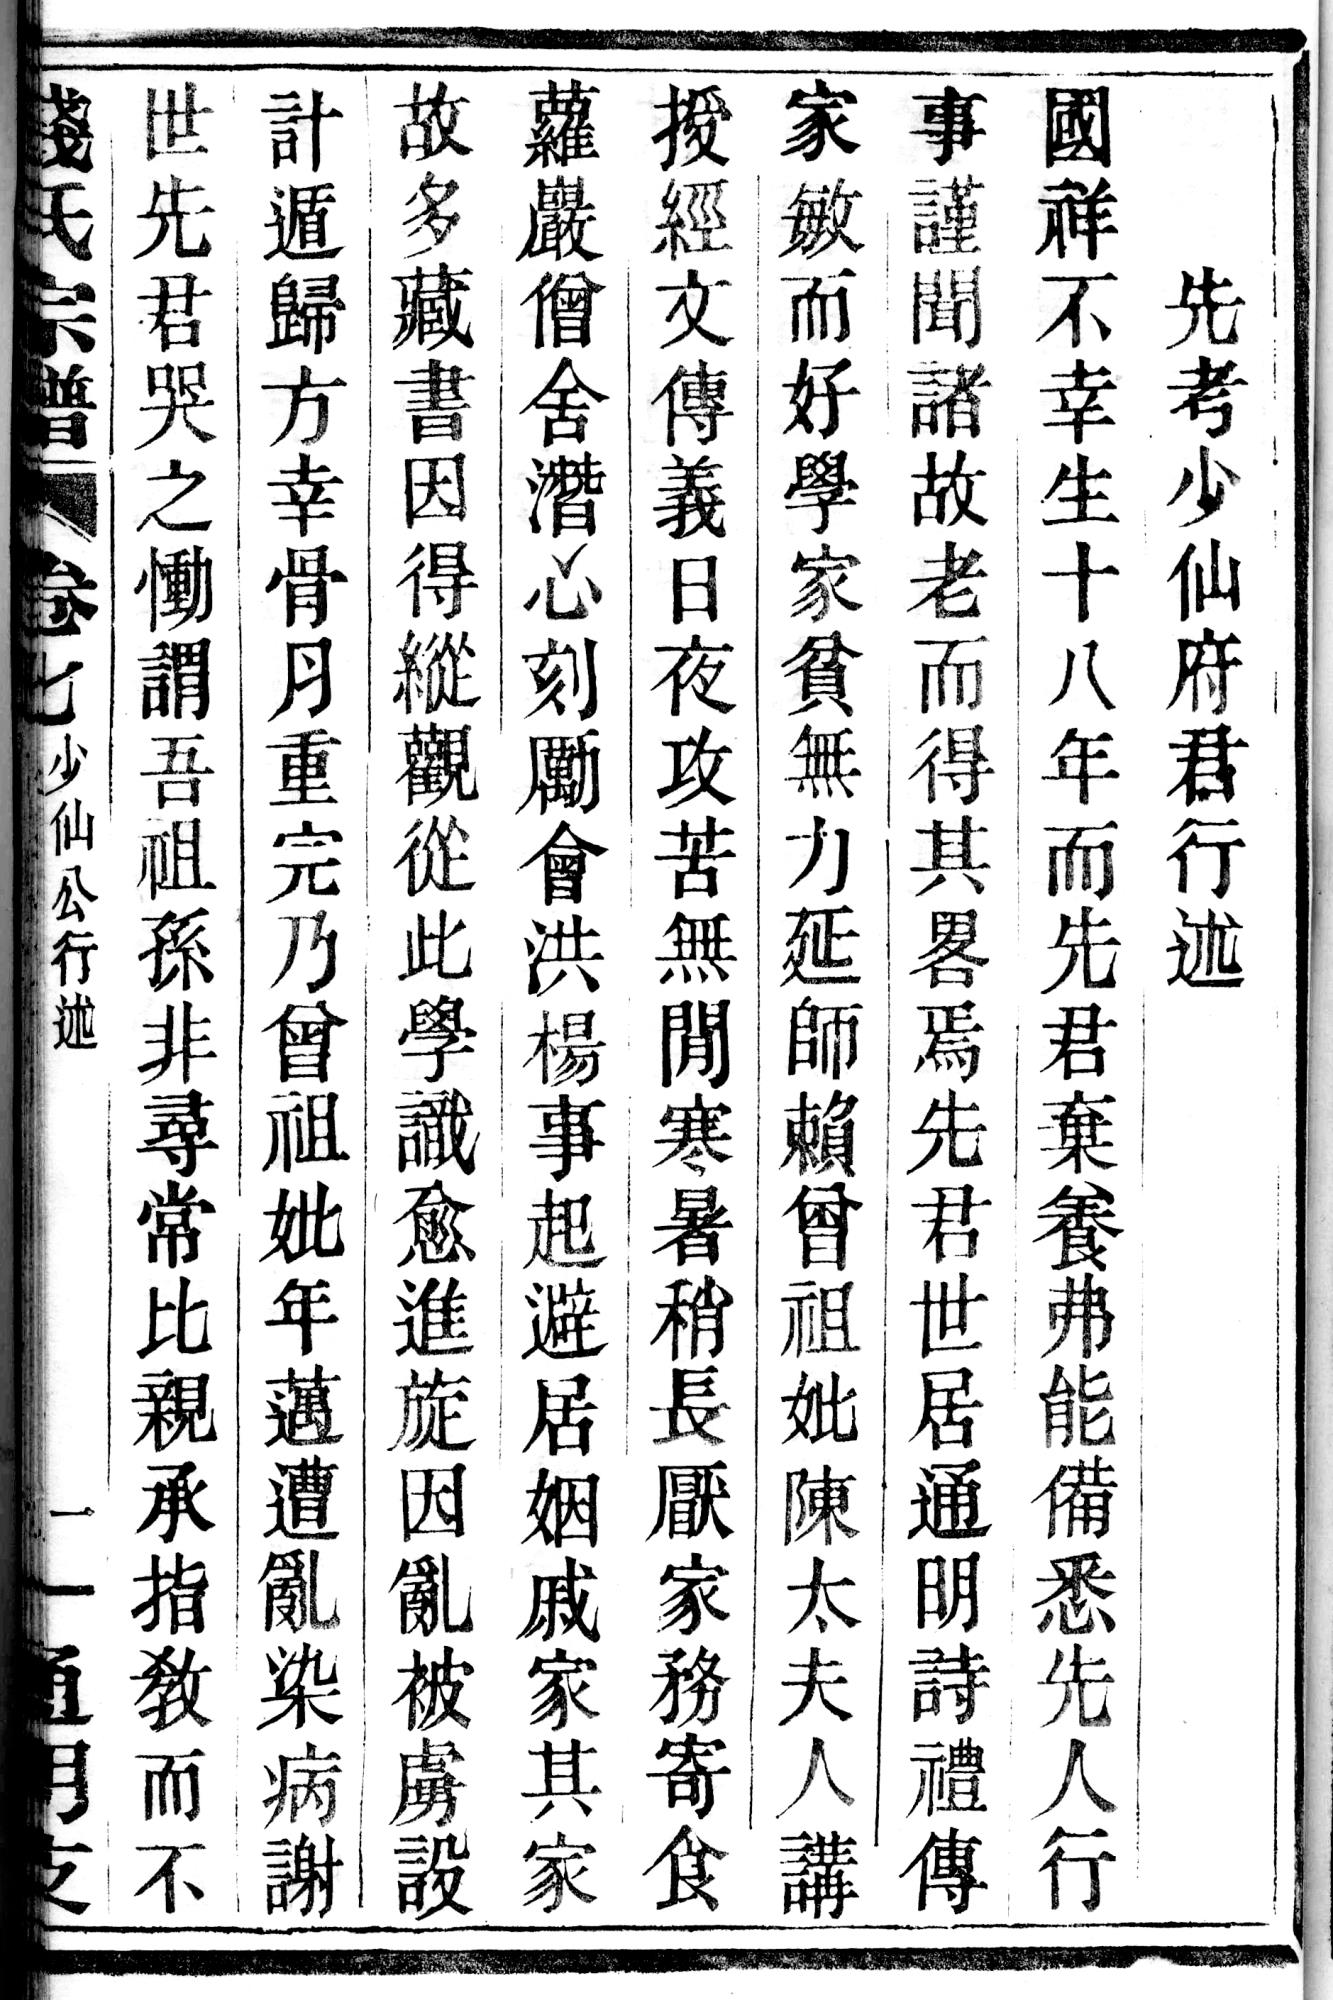 先考少仙府君行述
國祥不幸生十八年而先君棄養弗能備悉先人行
事謹聞諸故老而得其畧焉先君世居通明詩禮傳
家敏而好學家貧無力延師賴曾祖妣陳太夫人講
授經文傳義日夜攻苦無閒寒暑稍長厭家務寄食
蘿巖僧舍潛心刻勵會洪楊事起避居姻戚家其家
故多藏書因得縱觀從此學識愈進旋因亂被虜設
計遁歸方幸骨月重完乃曾祖妣年邁遭亂染病謝
世先君哭之慟謂吾祖孫非尋常比親承指教而不
錢氏宗譜 卷七 少仙公行述 一 通明支